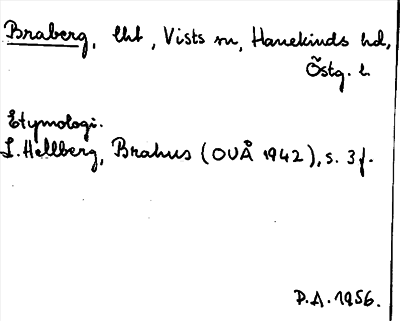 Braberg, lht, Vists sn, Hanekinds hd,
Östg. l.
Etymologi.
L. Hellberg, Brahus (OUÅ 1942), s. 3 f.
P.A. 1956.